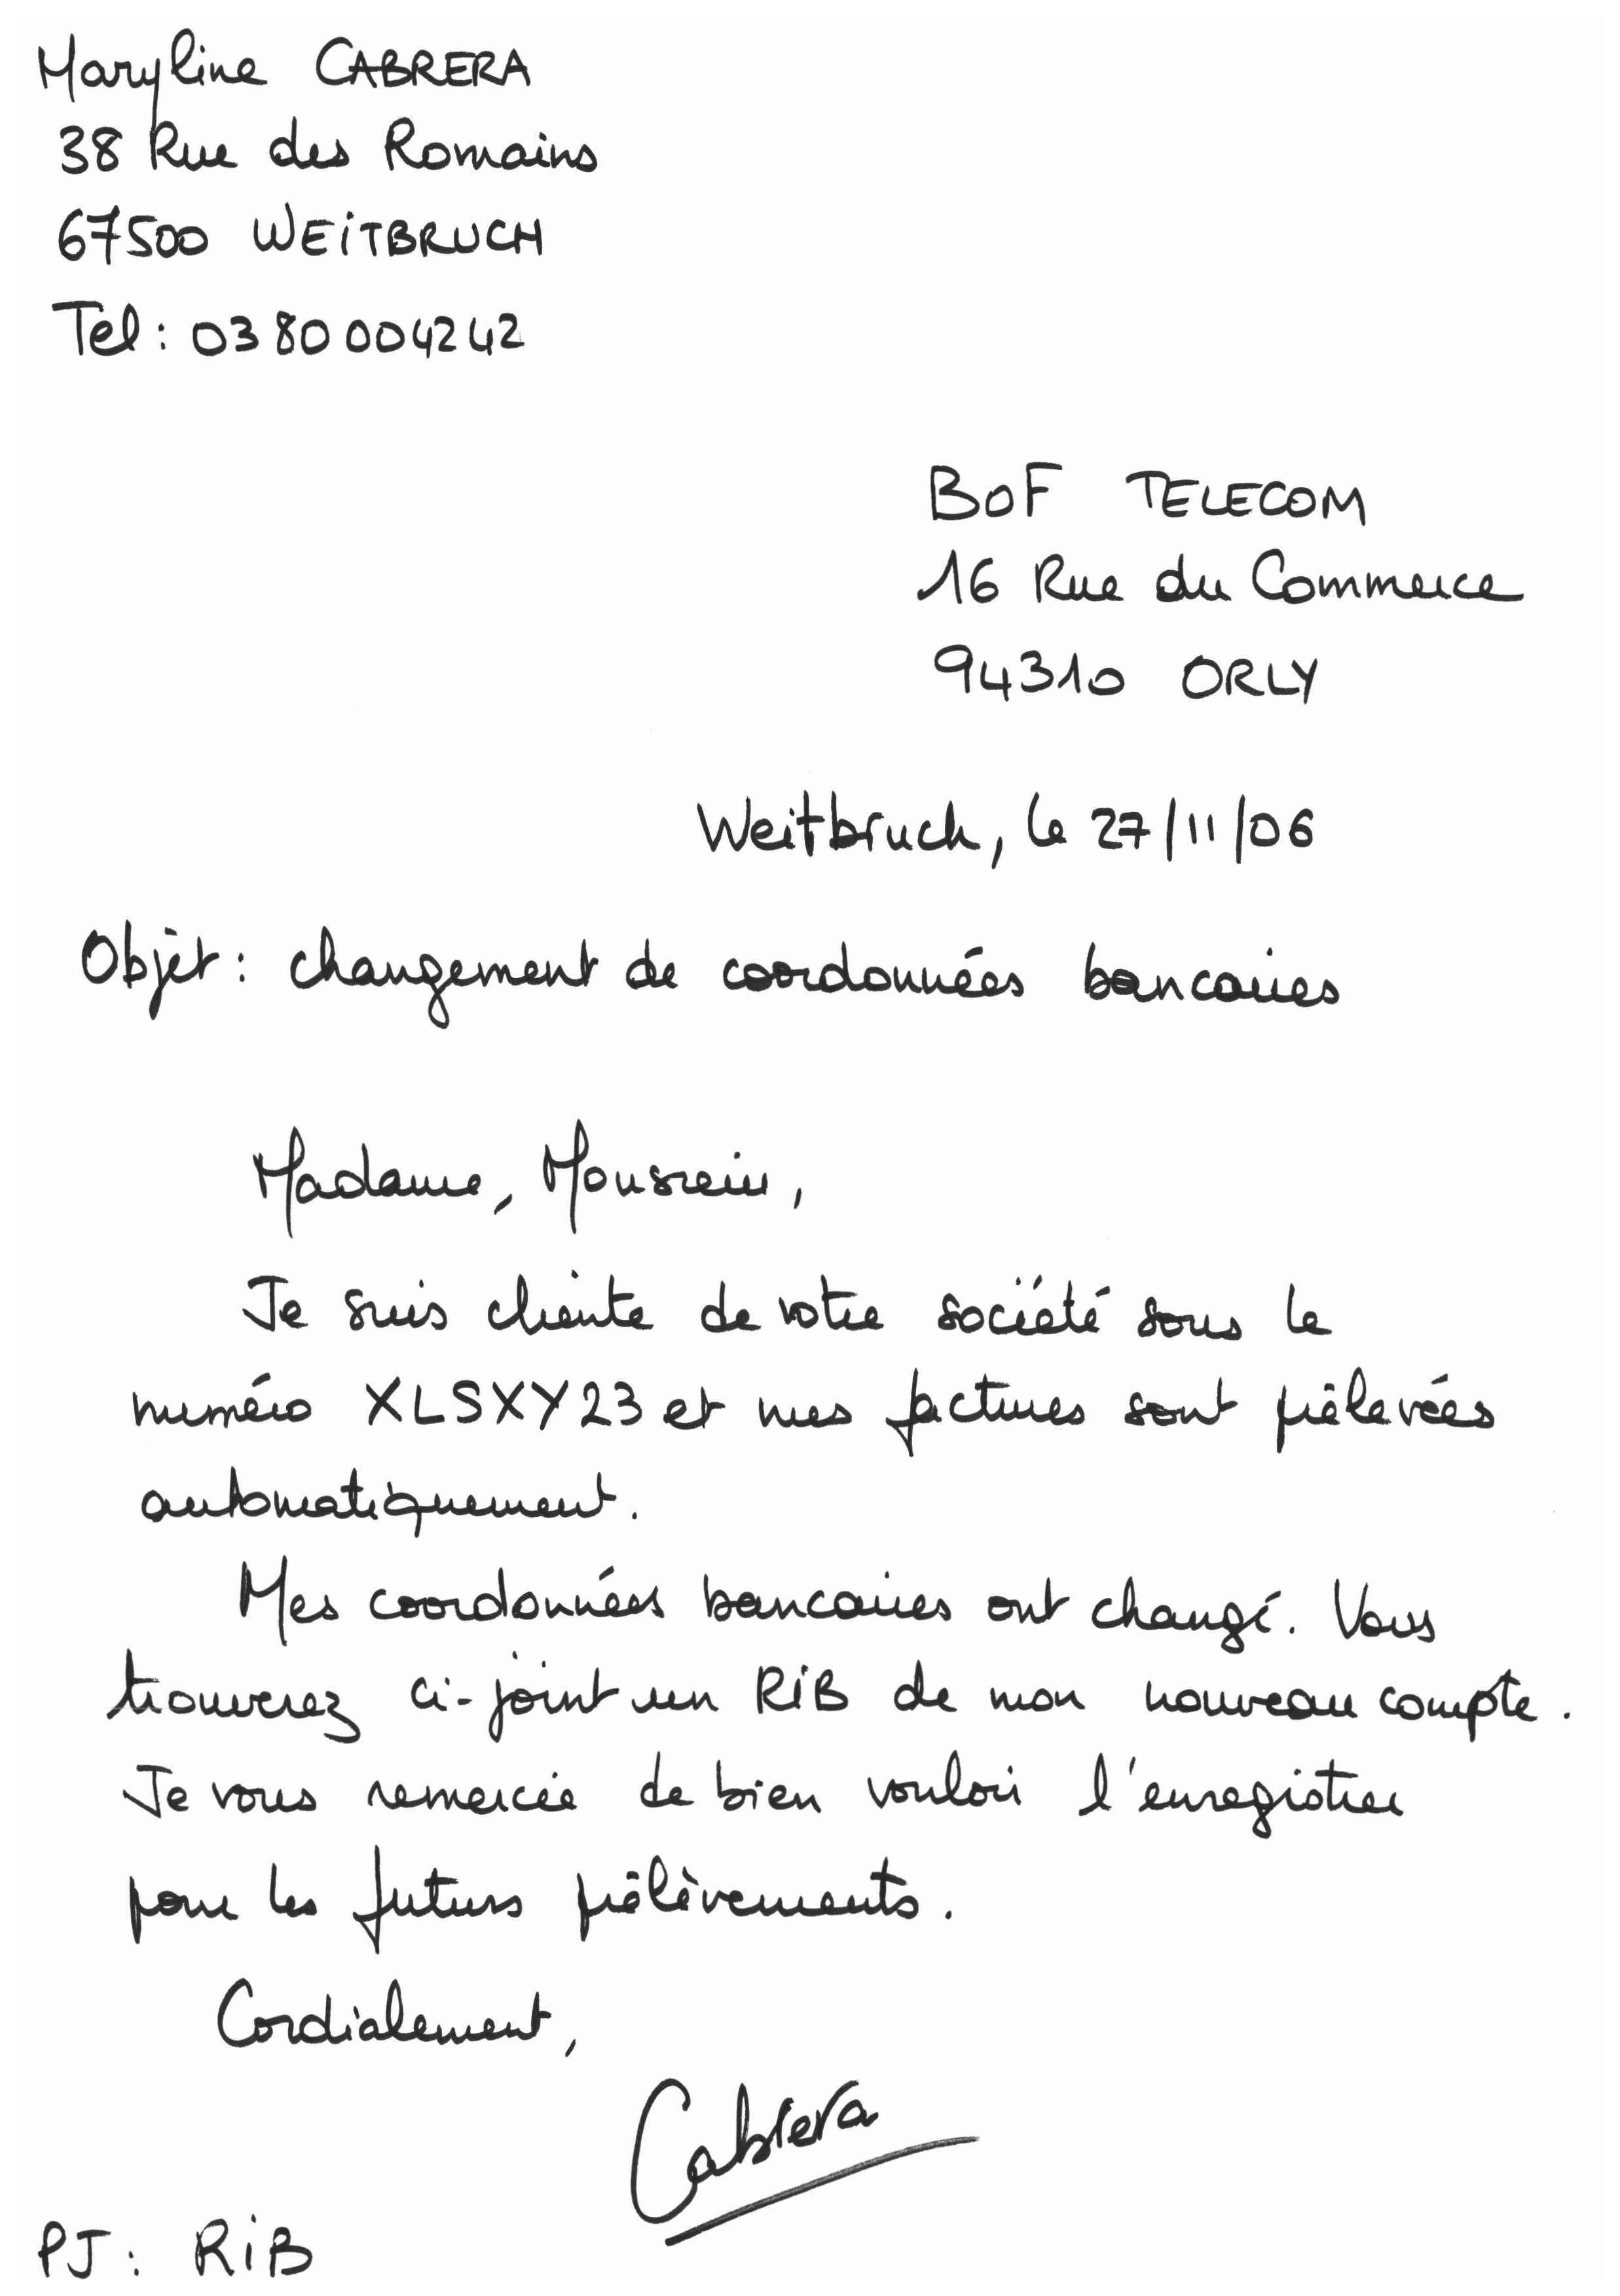 Maryline CABRERA
38 Rue des Romains
67500 WEITBRUCH
Tel: 0380004242
BOF TELECOM
16 Rue du Commerce
94310 ORLY
Weitbruch, le 27/11/06
Objet: changement de coordonnées bancaires
Madame, Monsieur,
Je suis cliente de votre société sous le
numéro XLSXY23 et mes factures sont prélevées
automatiquement.
Mes coordonnées bancaires ont changé. Vous
trouverez ci-joint un RIB de mon nouveau compte.
Je vous remercie de bien vouloir l'enregistrer
pour les futurs prélèvements.
Cordialement,
Cabrera
PJ: RIB